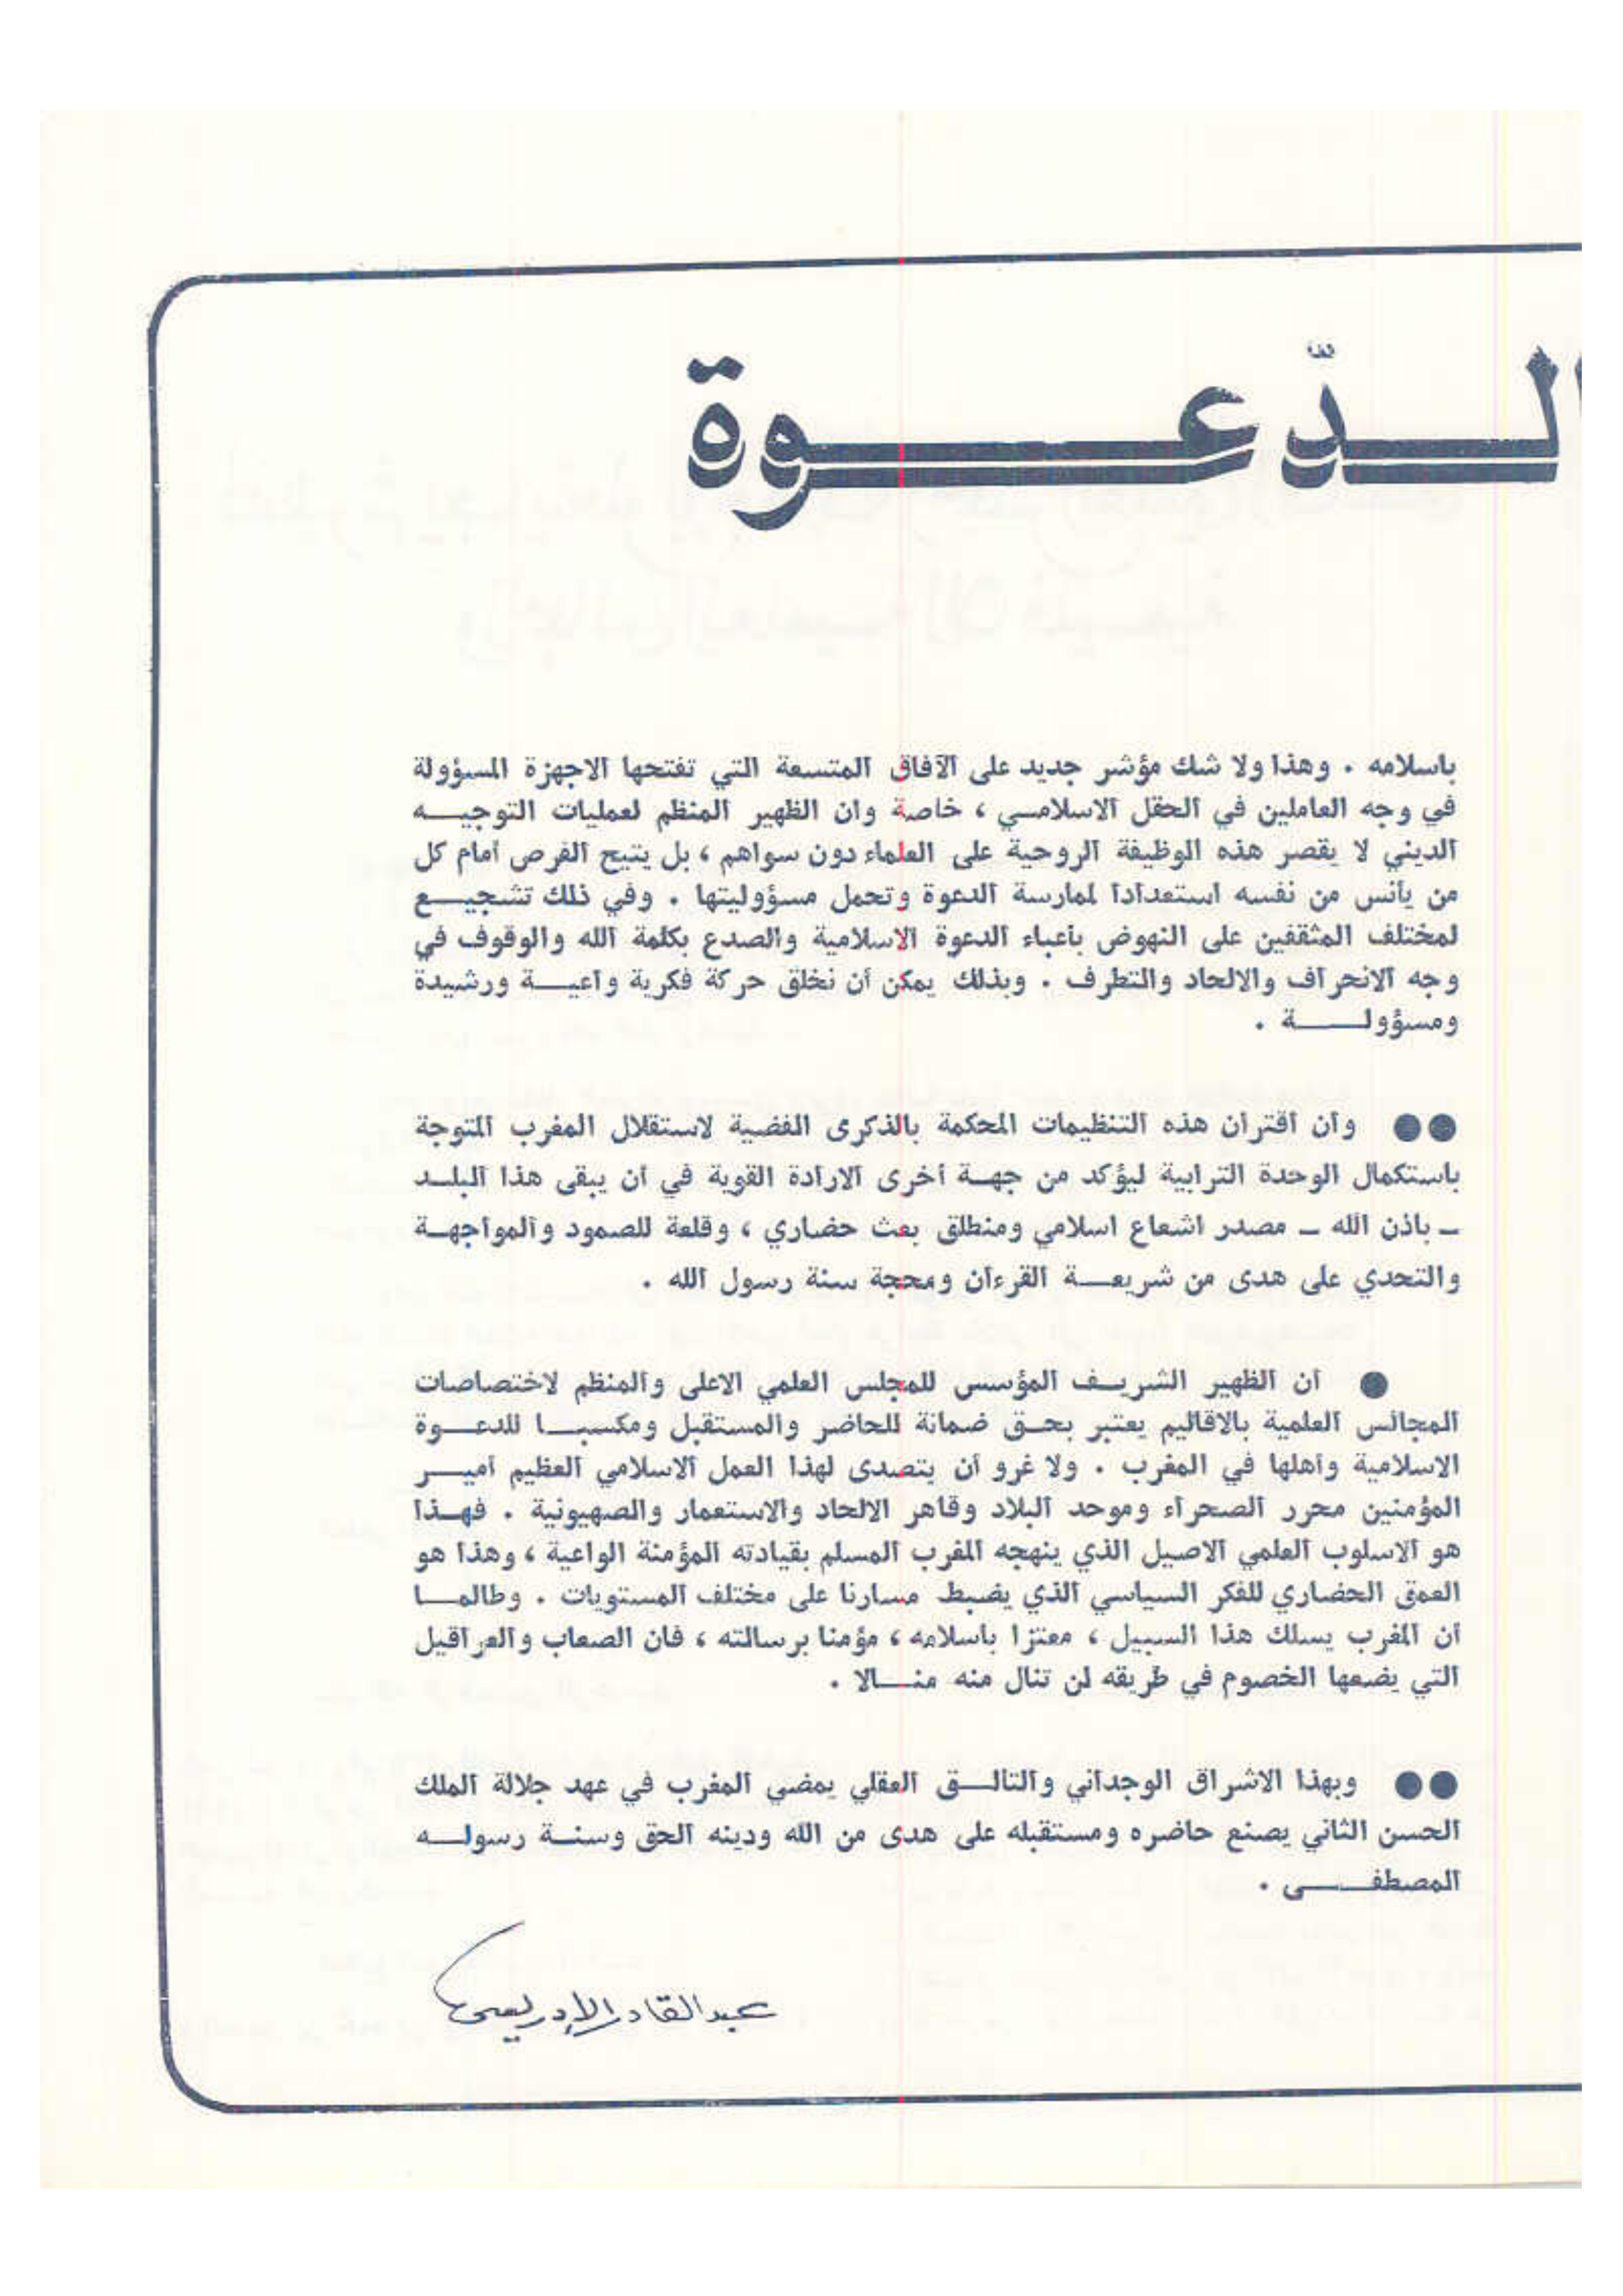 الدّعوة
باسلامه . وهذا ولا شك مؤشر جديد على الآفاق المتسعة التي تفتحها الاجهزة المسؤولة
في وجه العاملين في الحقل الاسلامي ، خاصة وان الظهير المنظم لعمليات التوجيه
الديني لا يقصر هذه الوظيفة الروحية على العلماء دون سواهم ، بل يتيح الفرص أمام كل
من يأنس من نفسه استعدادا لممارسة الدعوة وتحمل مسؤوليتها . وفي ذلك تشجيع
لمختلف المثقفين على النهوض بأعباء الدعوة الاسلامية والصدع بكلمة الله والوقوف في
وجه الانحراف والالحاد والتطرف . وبذلك يمكن أن نخلق حركة فكرية واعية ورشيدة
ومسؤولة .
●● وان اقتران هذه التنظيمات المحكمة بالذكرى الفضية لاستقلال المغرب المتوجة
باستكمال الوحدة الترابية ليؤكد من جهة أخرى الارادة القوية في أن يبقى هذا البلد
ـ باذن الله ـ مصدر اشعاع اسلامي ومنطلق بعث حضاري ، وقلعة للصمود والمواجهة
والتحدي على هدى من شريعة القرءان ومحجة سنة رسول الله .
● ان الظهير الشريف المؤسس للمجلس العلمي الاعلى والمنظم لاختصاصات
المجالس العلمية بالاقاليم يعتبر بحق ضمانة للحاضر والمستقبل ومكسبا للدعوة
الاسلامية وأهلها في المغرب . ولا غرو أن يتصدى لهذا العمل الاسلامي العظيم أمير
المؤمنين محرر الصحراء وموحد البلاد وقاهر الالحاد والاستعمار والصهيونية . فهذا
هو الاسلوب العلمي الاصيل الذي ينهجه المغرب المسلم بقيادته المؤمنة الواعية ، وهذا هو
العمق الحضاري للفكر السياسي الذي يضبط مسارنا على مختلف المستويات . وطالما
أن المغرب يسلك هذا السبيل ، معتزا باسلامه ، مؤمنا برسالته ، فان الصعاب والعراقيل
التي يضعها الخصوم في طريقه لن تنال منه منالا .
●● وبهذا الاشراق الوجداني والتالق العقلي يمضي المغرب في عهد جلالة الملك
الحسن الثاني يصنع حاضره ومستقبله على هدى من الله ودينه الحق وسنة رسوله
المصطفى .
عبد القادر الإدريسي